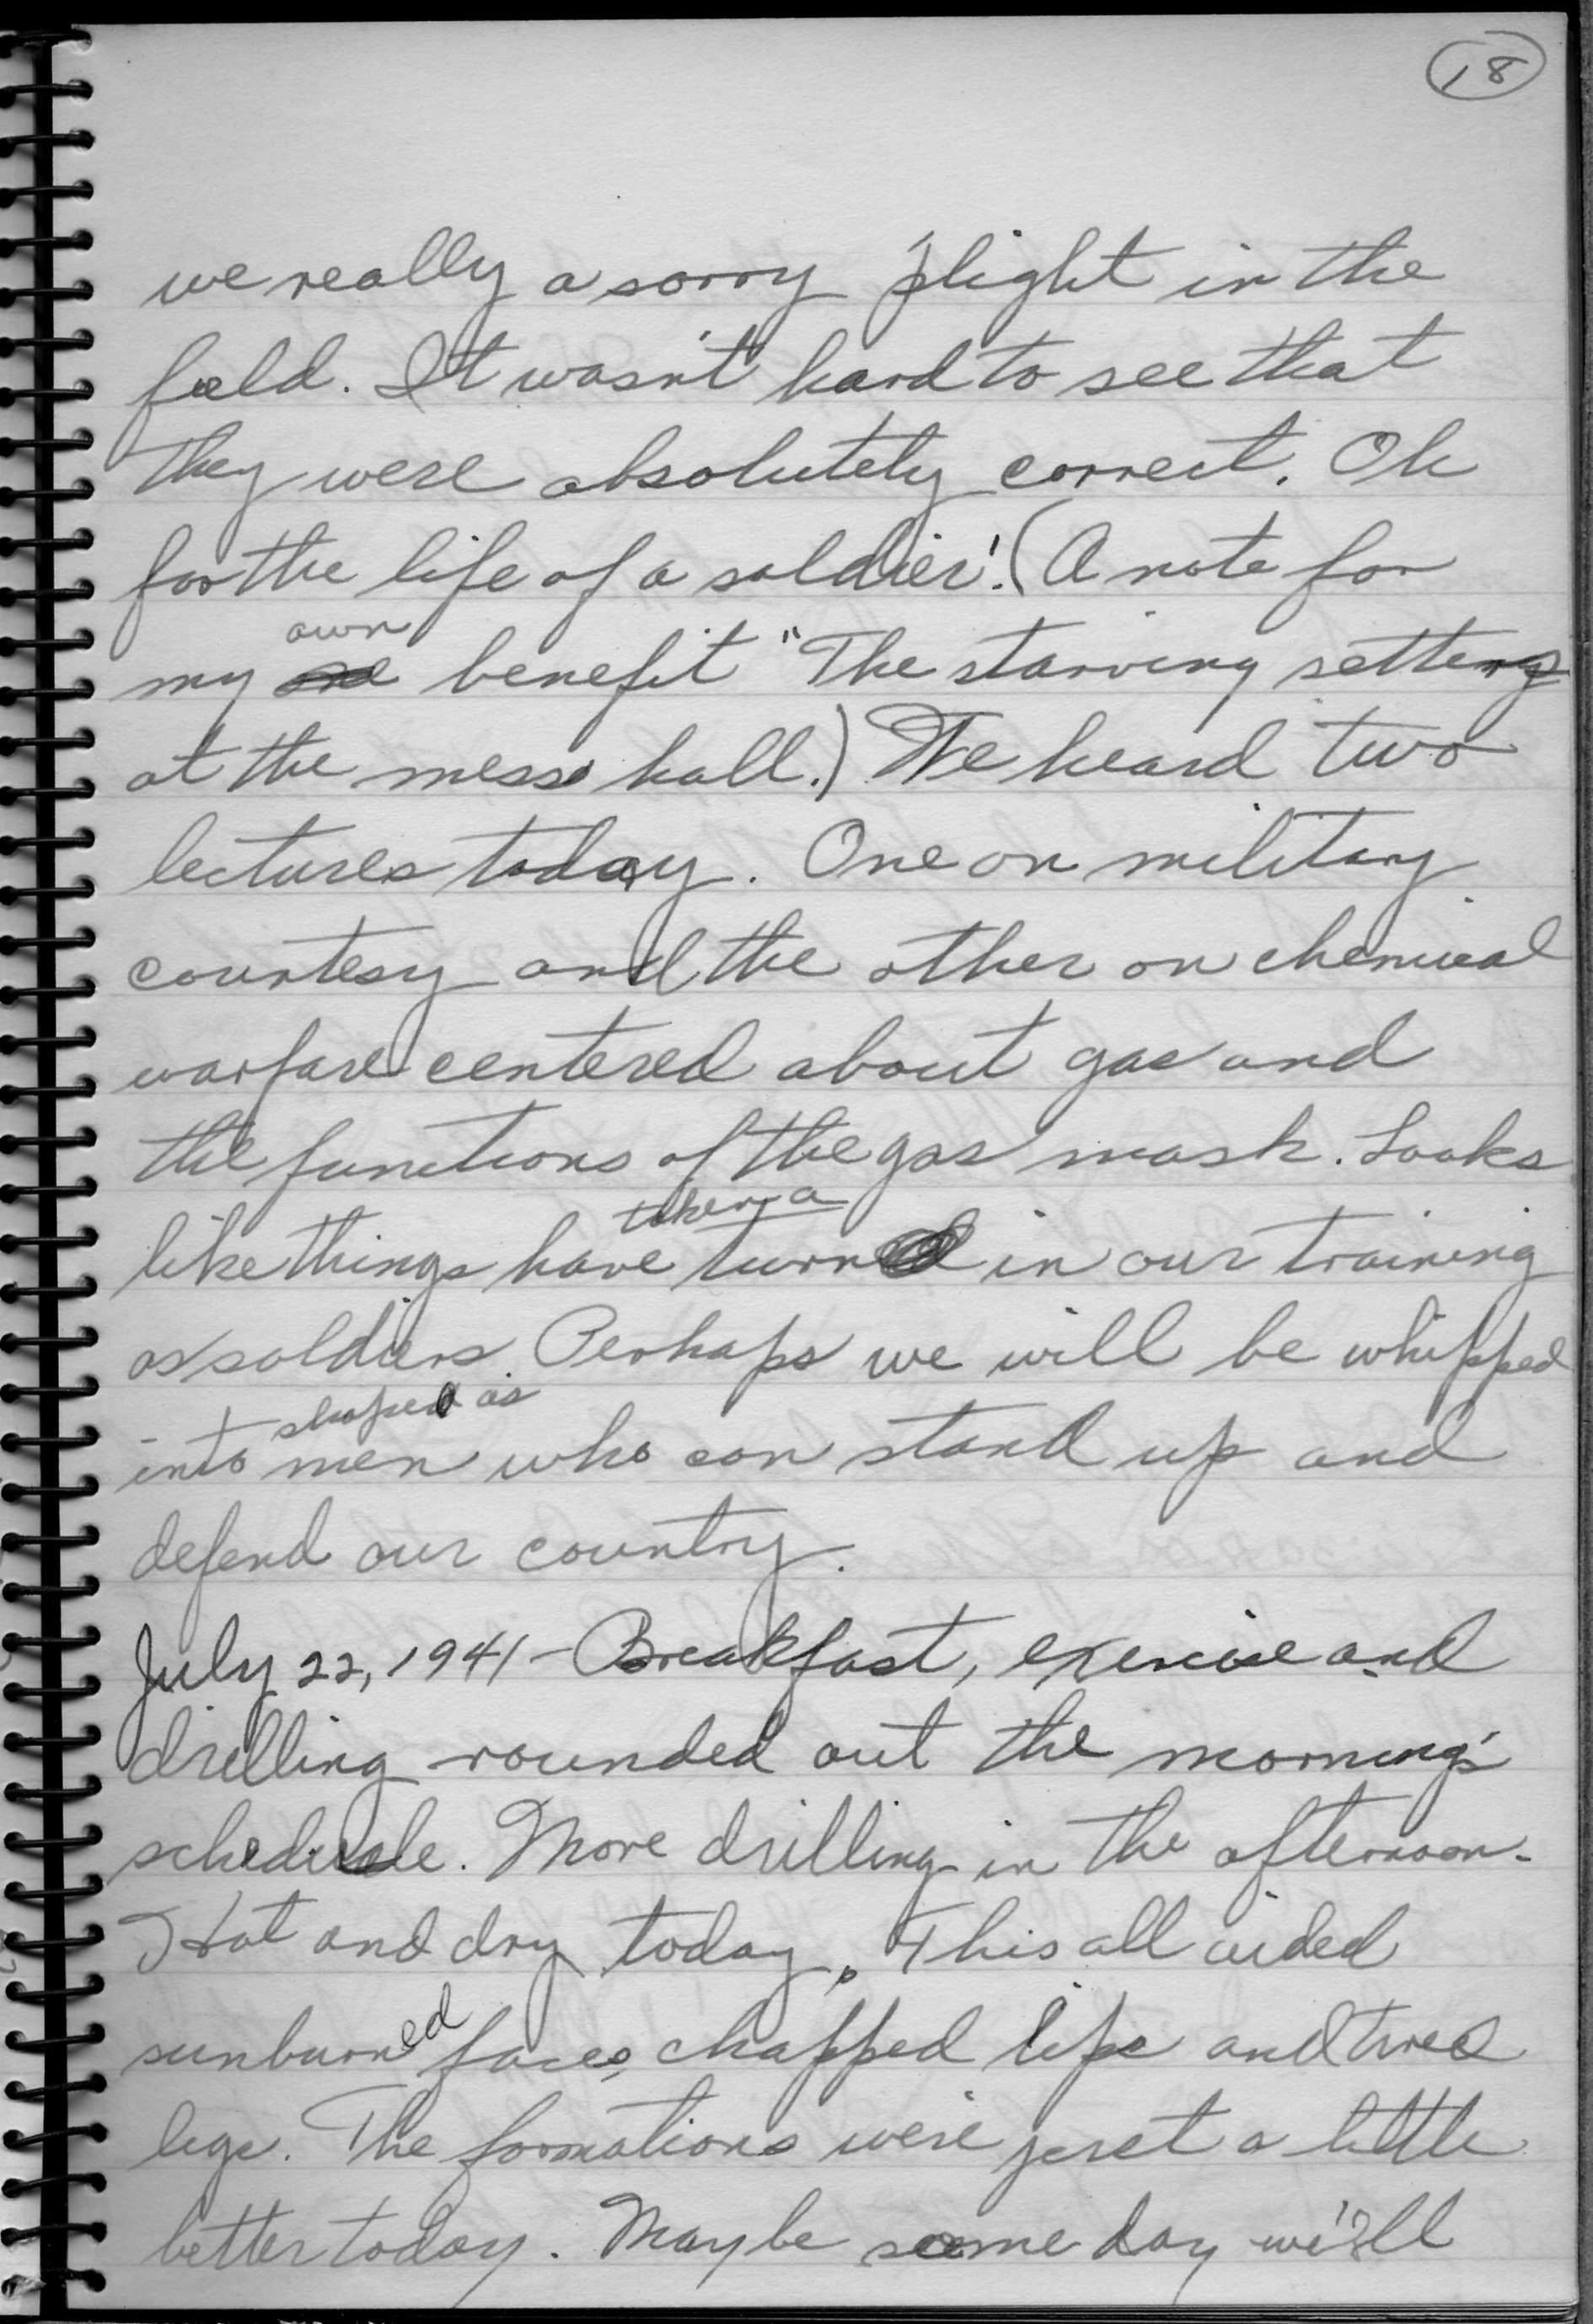 18
we really a sorry plight in the
field. It wasn't hard to see that
they were absolutely correct. Oh
for the life of a soldier! (A note for
my own benefit "The starving setting
at the mess hall.) We heard two
lectures today. One on military
courtesy and the other on chemical
warfare centered about gas and
the functions of the gas mask. Looks
like things have taken a turn in our training
as soldiers. Perhaps we will be whipped
into shaped as men who can stand up and
defend our country.
July 22, 1941 - Breakfast, exercise and
drilling rounded out the morning's
schedule. More drilling in the afternoon.
Hot and dry today. This all aided
sunburned faces, chapped lips and tired
legs. The formations were just a little
better today. Maybe some day we'll